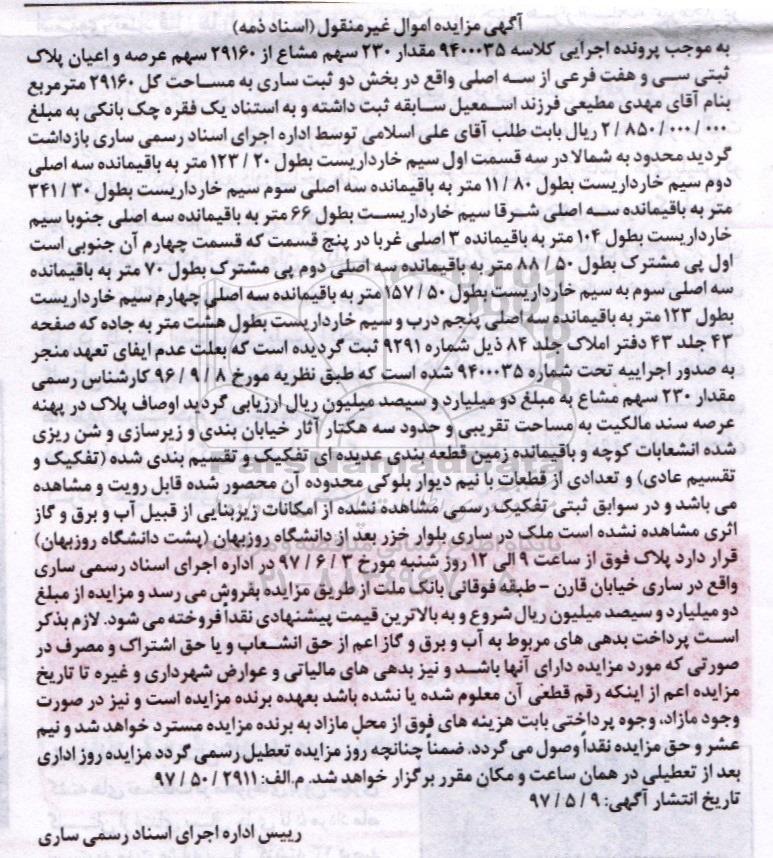 آگهی مزایده اموال غیرمنقول (اسناد ذمه)
به موجب پرونده اجرایی کلاسه ۹۴۰۰۰۳۵ مقدار ۲۳۰ سهم مشاع از ۲۹۱۶۰ سهم عرصه و اعیان پلاک
ثبتی سی و هفت فرعی از سه اصلی واقع در بخش دو ثبت ساری به مساحت کل ۲۹۱۶۰ مترمربع
بنام آقای مهدی مطیعی فرزند اسمعیل سابقه ثبت داشته و به استناد یک فقره چک بانکی به مبلغ
۲/۸۵۰/۰۰۰/۰۰۰ ریال بابت طلب آقای علی اسلامی توسط اداره اجرای اسناد رسمی ساری بازداشت
گردید محدود به شمالا در سه قسمت اول سیم خارداریست بطول ۲۰ / ۱۲۳ متر به باقیمانده سه اصلی
دوم سیم خارداریست بطول ۸۰ / ۱۱ متر به باقیمانده سه اصلی سوم سیم خارداریست بطول ۳۰ / ۳۴۱
متر به باقیمانده سه اصلی شرقا سیم خارداریست بطول ۶۶ متر به باقیمانده سه اصلی جنوبا سیم
خارداریست بطول ۱۰۴ متر به باقیمانده ۳ اصلی غربا در پنج قسمت که قسمت چهارم آن جنوبی است
اول پی مشترک بطول ۵۰ / ۸۸ متر به باقیمانده سه اصلی دوم پی مشترک بطول ۷۰ متر به باقیمانده
سه اصلی سوم به سیم خارداریست بطول ۵۰ / ۱۵۷ متر به باقیمانده سه اصلی چهارم سیم خارداریست
بطول ۱۲۳ متر به باقیمانده سه اصلی پنجم درب و سیم خارداریست بطول هشت متر به جاده که صفحه
۴۳ جلد ۴۳ دفتر املاک جلد ۸۴ ذیل شماره ۹۲۹۱ ثبت گردیده است که بعلت عدم ایفای تعهد منجر
به صدور اجراییه تحت شماره ۹۴۰۰۰۳۵ شده است که طبق نظریه مورخ ۸ / ۹ / ۹۶ کارشناس رسمی
مقدار ۲۳۰ سهم مشاع به مبلغ دو میلیارد و سیصد میلیون ریال ارزیابی گردید اوصاف پلاک در پهنه
عرصه سند مالکیت به مساحت تقریبی و حدود سه هکتار آثار خیابان بندی و زیرسازی و شن ریزی
شده انشعابات کوچه و باقیمانده زمین قطعه بندی عدیده ای تفکیک و تقسیم بندی شده (تفکیک و
تقسیم عادی) و تعدادی از قطعات با نیم دیوار بلوکی محدوده آن محصور شده قابل رویت و مشاهده
می باشد و در سوابق ثبتی تفکیک رسمی مشاهده نشده از امکانات زیربنایی از قبیل آب و برق و گاز
اثری مشاهده نشده است ملک در ساری بلوار خزر بعد از دانشگاه روزبهان (پشت دانشگاه روزبهان)
قرار دارد پلاک فوق از ساعت ۹ الی ۱۲ روز شنبه مورخ ۳ / ۶ / ۹۷ در اداره اجرای اسناد رسمی ساری
واقع در ساری خیابان قارن - طبقه فوقانی بانک ملت از طریق مزایده بفروش می رسد و مزایده از مبلغ
دو میلیارد و سیصد میلیون ریال شروع و به بالاترین قیمت پیشنهادی نقداً فروخته می شود. لازم بذکر
است پرداخت بدهی های مربوط به آب و برق و گاز اعم از حق انشعاب و یا حق اشتراک و مصرف در
صورتی که مورد مزایده دارای آنها باشد و نیز بدهی های مالیاتی و عوارض شهرداری و غیره تا تاریخ
مزایده اعم از اینکه رقم قطعی آن معلوم شده یا نشده باشد بعهده برنده مزایده است و نیز در صورت
وجود مازاد، وجوه پرداختی بابت هزینه های فوق از محل مازاد به برنده مزایده مسترد خواهد شد و نیم
عشر و حق مزایده نقداً وصول می گردد. ضمناً چنانچه روز مزایده تعطیل رسمی گردد مزایده روز اداری
بعد از تعطیلی در همان ساعت و مکان مقرر برگزار خواهد شد. م.الف: ۲۹۱۱ / ۵۰ / ۹۷
تاریخ انتشار آگهی: ۹ / ۵ / ۹۷
رییس اداره اجرای اسناد رسمی ساری
ParsNamadData